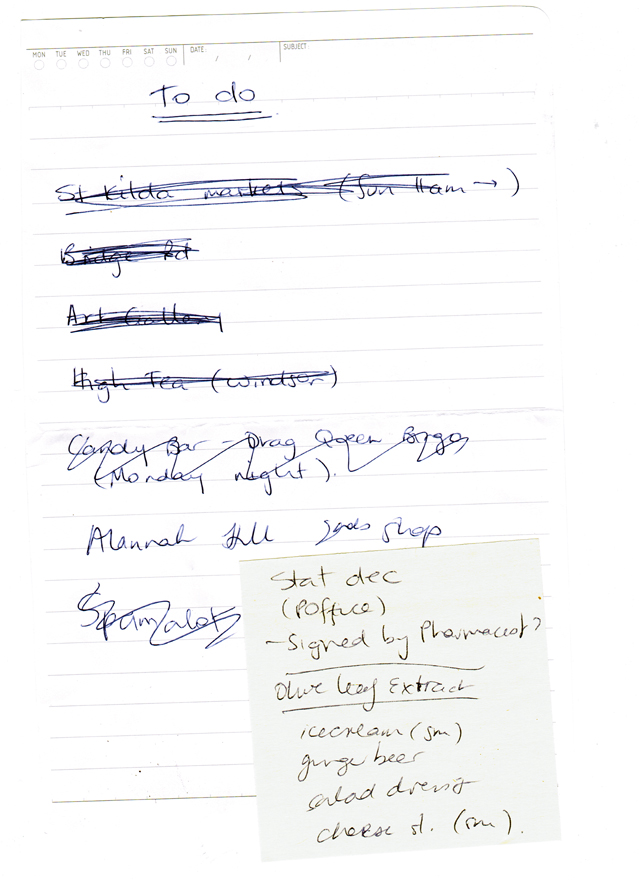 MON TUE WED THU FRI SAT SUN DATE: / / SUBJECT:
To do
St Kilda markets (Sun 11am → )
Bridge Rd
Art Gallery
High Tea (Windsor)
Candy Bar - Drag Queen Bingo
(Monday night).
Alannah Hill shop
Spamalot
Stat dec
(POffice)
- Signed by Pharmacist?
Olive leaf Extract
icecream (sm)
ginger beer
salad dress
cheese sl. (sm).